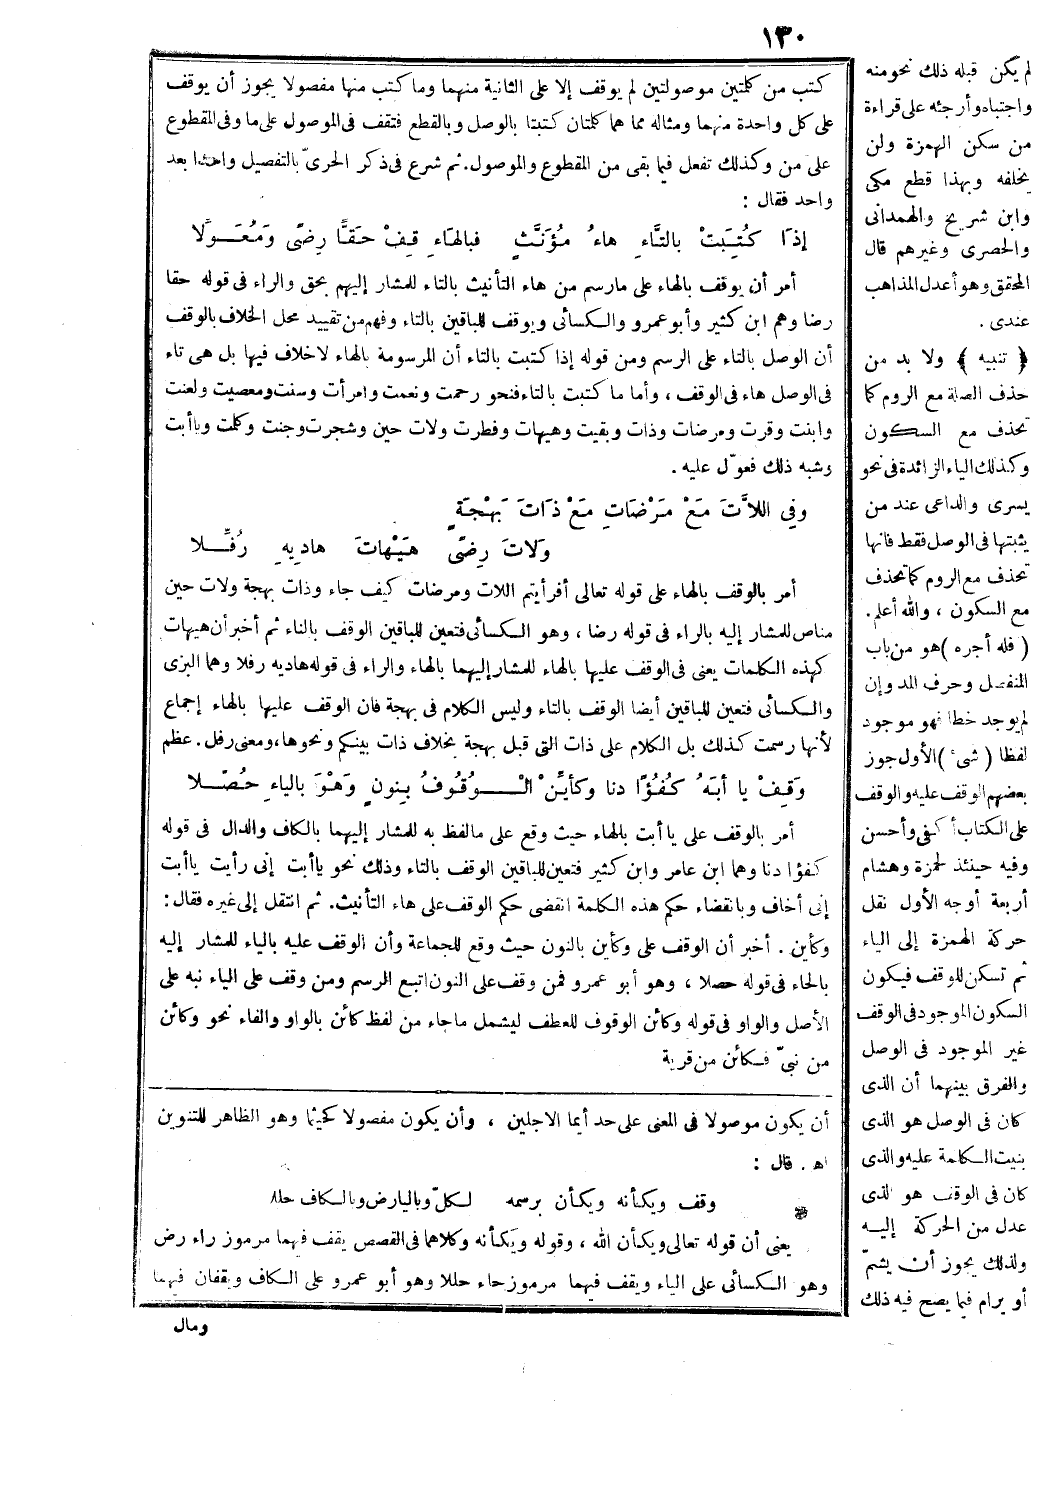 ١٣٠
كتب من كلمتين موصولتين لم يوقف إلا على الثانية منهما وما كتب منها مفصولا يجوز أن يوقف
على كل واحدة منهما ومثاله مما هما كلمتان كتبتا بالوصل وبالقطع فتقف فى الموصول على ما وفى المقطوع
على من وكذلك تفعل فيما بقى من المقطوع والموصول. ثم شرع فى ذكر الحرىّ بالتفصيل واحدا بعد
واحد فقال :
إذَا كُتِبَتْ بالتَّاءِ هاءُ مُؤَنَّثٍ فبالهَاءِ قِفْ حَقَّا رِضًى وَمُعَوَّلًا
أمر أن يوقف بالهاء على مارسم من هاء التأنيث بالتاء للمشار إليهم بحق والراء فى قوله حقا
رضا وهم ابن كثير وأبو عمرو والكسائى ويوقف للباقين بالتاء وفهم من تقييد محل الخلاف بالوقف
أن الوصل بالتاء على الرسم ومن قوله إذا كتبت بالتاء أن المرسومة بالهاء لاخلاف فيها بل هى تاء
فى الوصل هاء فى الوقف ، وأما ما كتبت بالتاء فنحو رحمت ونعمت وامرأت وسنت ومعصيت ولعنت
وابنت وقرت ومرضات وذات وبقيت وهيهات وفطرت ولات حين وشجرت وجنت وكلمت وياأبت
وشبه ذلك فعوّل عليه .
وفِي اللاَّتَ مَعْ مَرْضَاتِ مَعْ ذَاتَ بَهْجَةٍ
وَلاتَ رِضًى هَيْهَاتَ هادِيهِ رُفِّلا
أمر بالوقف بالهاء على قوله تعالى أفرأيتم اللات ومرضات كيف جاء وذات بهجة ولات حين
مناص للمشار إليه بالراء فى قوله رضا ، وهو الكسائى فتعين للباقين الوقف بالتاء ثم أخبر أن هيهات
كهذه الكلمات يعنى فى الوقف عليها بالهاء للمشار إليهما بالهاء والراء فى قوله هاديه رفلا وهما البزى
والكسائى فتعين للباقين أيضا الوقف بالتاء وليس الكلام فى بهجة فان الوقف عليها بالهاء إجماع
لأنها رسمت كذلك بل الكلام على ذات التى قبل بهجة بخلاف ذات بينكم ونحوها، ومعنى رفل. عظم
وَقِفْ يا أبَهْ كُفُؤًا دنا وكأيِّنْ الْوُقُوفُ بِنونٍ وَهْوَ بالياءِ حُصِّلا
أمر بالوقف على يا أبت بالهاء حيث وقع على مالفظ به للمشار إليهما بالكاف والدال فى قوله
كفؤا دنا وهما ابن عامر وابن كثير فتعين للباقين الوقف بالتاء وذلك نحو ياأبت إنى رأيت ياأبت
إنى أخاف وبانقضاء حكم هذه الكلمة انقضى حكم الوقف على هاء التأنيث. ثم انتقل إلى غيره فقال :
وكأين . أخبر أن الوقف على وكأين بالنون حيث وقع للجماعة وأن الوقف عليه بالياء للمشار إليه
بالحاء فى قوله حصلا ، وهو أبو عمرو فمن وقف على النون اتبع الرسم ومن وقف على الياء نبه على
الأصل والواو فى قوله وكائن الوقوف للعطف ليشمل ماجاء من لفظ كائن بالواو والفاء نحو وكائن
من نبىّ فكائن من قرية
أن يكون موصولا فى المعنى على حد أيما الاجلين ، وأن يكون مفصولا كحيثما وهو الظاهر للتنوين
اه . قال :
وقف ويكأنه ويكأن برسمه لكلّ وباليا رض وبالكاف حللا
يعنى أن قوله تعالى ويكأن الله ، وقوله ويكأنه وكلاهما فى القصص يقف فيهما مرموز راء رض
وهو الكسائى على الياء ويقف فيهما مرموز حاء حللا وهو أبو عمرو على الكاف ويقفان فيهما
ومال
لم يكن قبله ذلك نحو منه
واجتباه وأرجئه على قراءة
من سكن الهمزة ولن
يخلفه وبهذا قطع مكى
وابن شريح والهمدانى
والحصرى وغيرهم قال
المحقق وهو أعدل المذاهب
عندى .
﴿ تنبيه ﴾ ولا بد من
حذف الصلة مع الروم كما
تحذف مع السكون
وكذلك الياء الزائدة فى نحو
يسرى والداعى عند من
يثبتها فى الوصل فقط فانها
تحذف مع الروم كما تحذف
مع السكون ، والله أعلم.
( فله أجره ) هو من باب
المنفصل وحرف المد وإن
لم يوجد خطا فهو موجود
لفظا ( شىء ) الأول جوز
بعضهم الوقف عليه والوقف
على الكتاب أكفى وأحسن
وفيه حينئذ لحمزة وهشام
أربعة أوجه الأول نقل
حركة الهمزة إلى الياء
ثم تسكن للوقف فيكون
السكون الموجود فى الوقف
غير الموجود فى الوصل
والفرق بينهما أن الذى
كان فى الوصل هو الذى
بنيت الكلمة عليه والذى
كان فى الوقف هو الذى
عدل من الحركة إليه
ولذلك يجوز أن يشمّ
أو يرام فيما يصح فيه ذلك